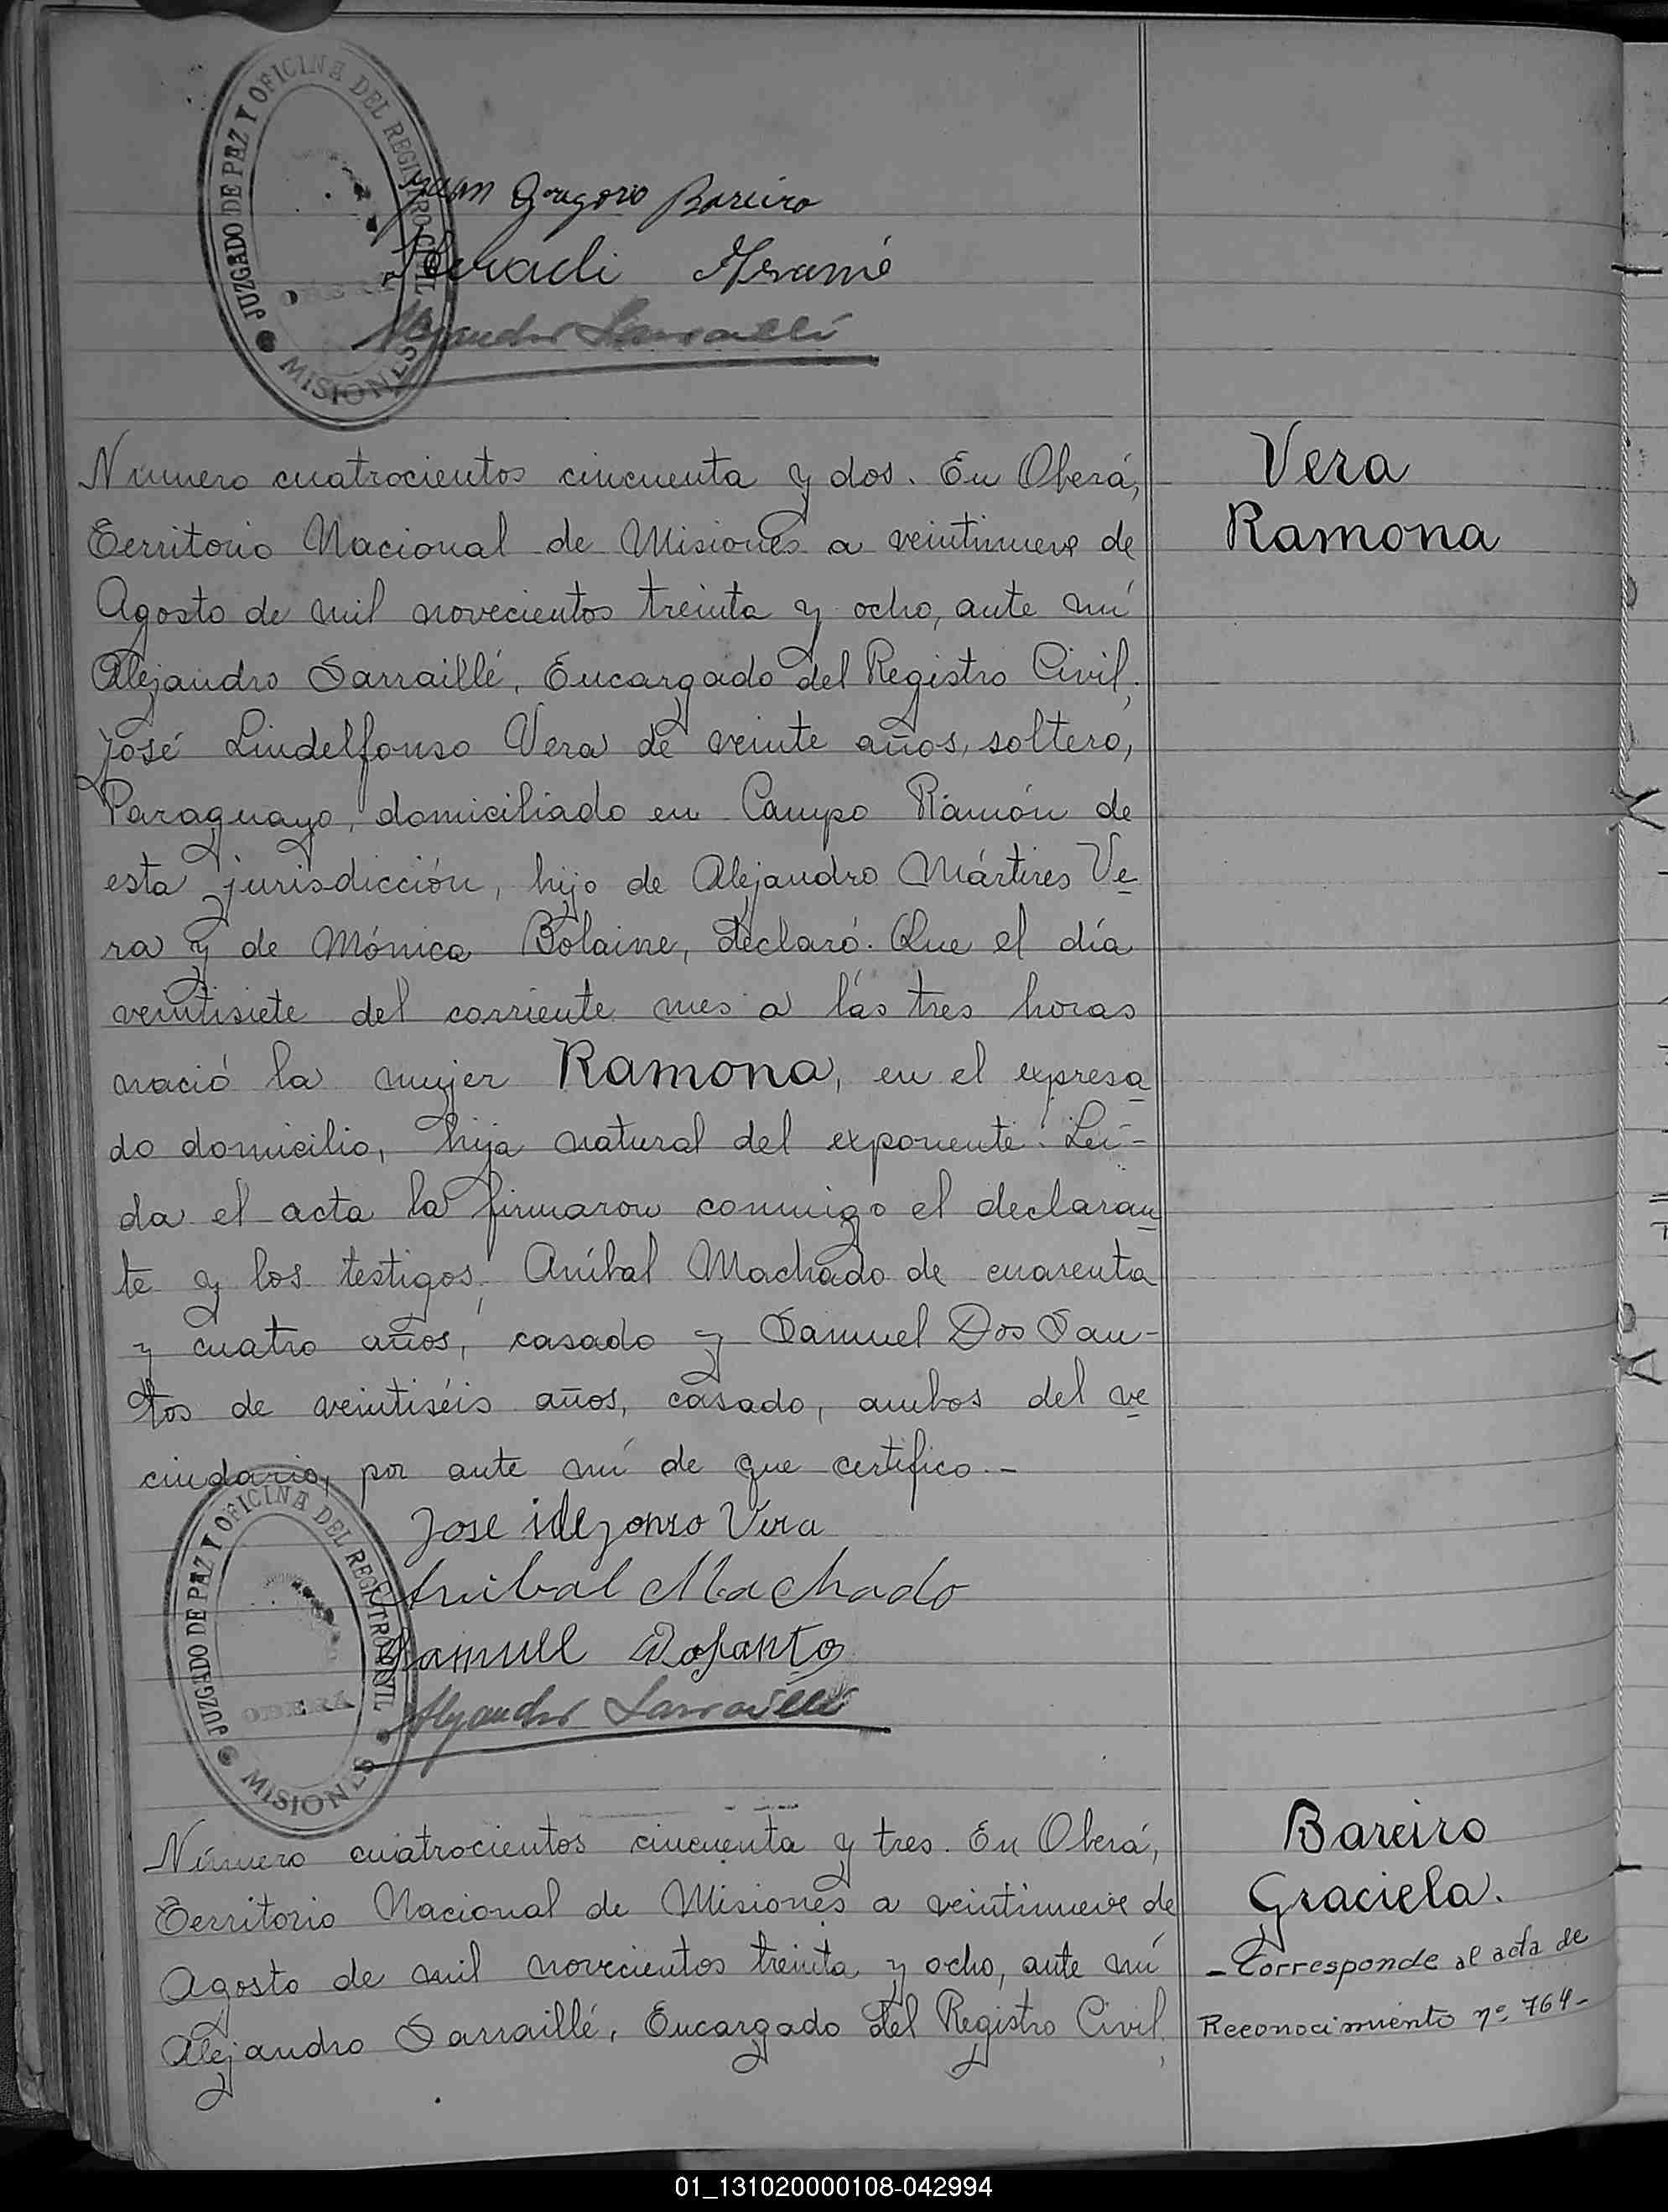 JUZGADO DE PAZ Y OFICINA DEL REGISTRO CIVIL
OBERA
MISIONES
Juan Gregorio Bareiro
Número cuatrocientos cincuenta y dos. En Oberá,
Territorio Nacional de Misiones a veintinueve de
Agosto de mil novecientos treinta y ocho, ante mí
Alejandro Sarraillé, Encargado del Registro Civil,
José Lindelfonso Vera de veinte años, soltero,
Paraguayo, domiciliado en Campo Ramón de
esta jurisdicción, hijo de Alejandro Mártires Ve
ra y de Mónica Bolaine, declaró: Que el día
veintisiete del corriente mes a las tres horas
nació la mujer RAMONA, en el expresa
do domicilio, hija natural del exponente. Leí-
da el acta la firmaron conmigo el declaran
te y los testigos, Aníbal Machado de cuarenta
y cuatro años, casado y Samuel Dos San-
tos de veintiséis años, casado, ambos del ve
cindario, por ante mí de que certifico.-
Vera
Ramona
Jose ildefonso Vera
Anibal Machado
Samuel Dosanto
Alejandro Sarraillé
JUZGADO DE PAZ Y OFICINA DEL REGISTRO CIVIL
OBERÁ
MISIONES
Número cuatrocientos cincuenta y tres. En Oberá,
Territorio Nacional de Misiones a veintinueve de
Agosto de mil novecientos treinta y ocho, ante mí
Alejandro Sarraillé, Encargado del Registro Civil,
Bareiro
Graciela.
- Corresponde al acta de
Reconocimiento nº 764-
01_131020000108-042994